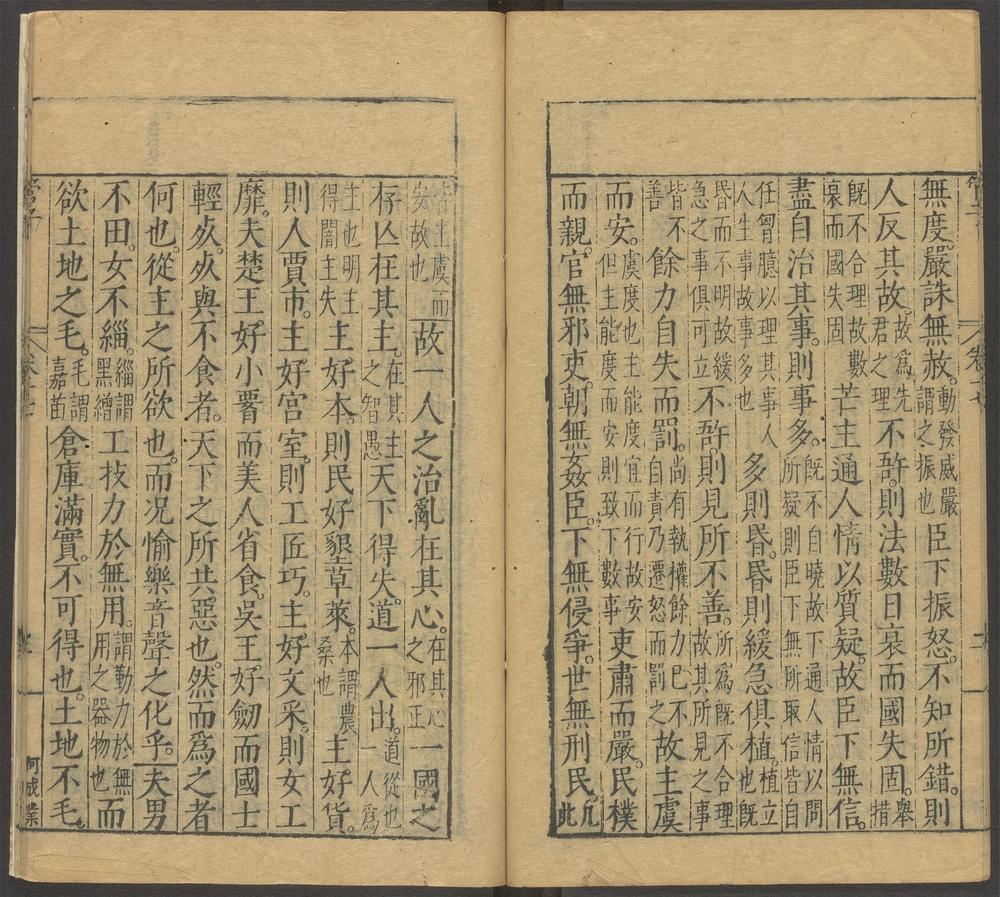 管子 卷十七 二
無度。嚴誅無赦。動發威嚴謂之振也臣下振怒。不知所錯。則
人反其故。故爲先君之理不䚷。則法數日衰而國失固。舉措
旣不合理故數衰而國失固芒主通人情以質疑。故臣下無信。
盡自治其事。則事多。旣不自曉故下通人情以問所疑則臣下無所取信皆自
任胷臆以理其事人人生事故事多也多則昏。昏則緩急俱植。植立也旣
昏而不明故緩急之事俱可立不䚷。則見所不善。所爲旣不合理故其所見之事
皆不善餘力自失而罰。尚有執權餘力巳不自責乃遷怒而罰之故主虞
而安。虞度也主能度宜而行故安但主能度而安則致下數事吏肅而嚴。民樸
而親。官無邪吏。朝無姦臣。下無侵爭。世無刑民。凡此
皆主虞而安故也故一人之治亂在其心。在其心之邪正一國之
存亾在其主。在其主之智愚天下得失。道一人出。道從也一人爲
主也明主得闇主失主好本。則民好墾草萊。本謂農桑也主好貨。
則人賈市。主好宮室。則工匠巧。主好文采。則女工
靡。夫楚王好小𦝫而美人省食。吳王好劒而國士
輕死。死與不食者。天下之所共惡也。然而爲之者
何也。從主之所欲也。而况愉樂音聲之化乎。夫男
不田。女不緇。緇謂黑繒工技力於無用。謂勤力於無用之器物也而
欲土地之毛。毛謂嘉苗倉庫滿實。不可得也。土地不毛。
管子 卷十七 何成業